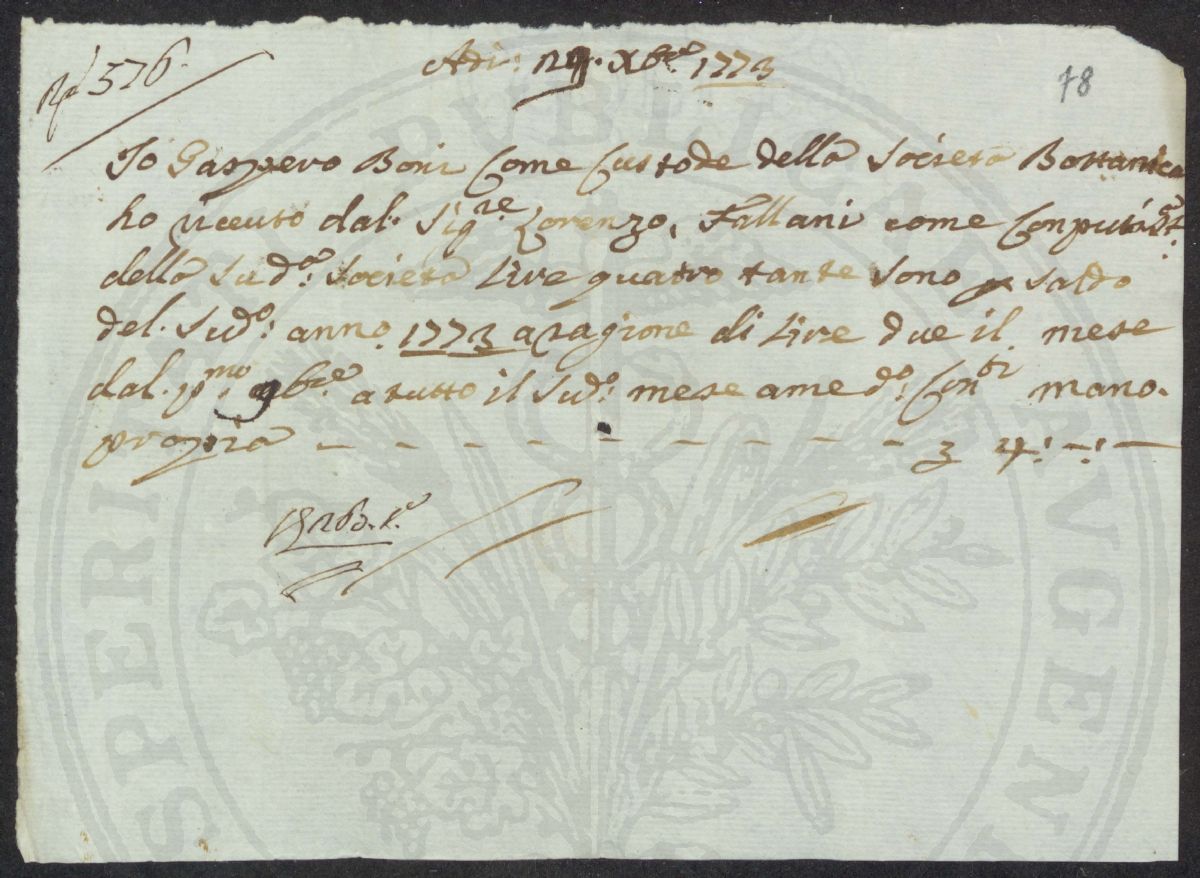 N.º 576.
Adi: 29. Xbre. 1773
78
Io Gaspero Boni Come Custode della Società Bottanica
ho riceuto dal. Sigre. Lorenzo, Fallani come Conputist.
della Sudª. Società Live quatro tante sono p saldo
del. Sudº: anno. 1773 a ragione di Live due il. mese
dal. pmo. 9bre a tutto il Sudº. mese a me dº. Conti mano.
propia — — — — — — — — — — 3 4:-:-
PROSPERITATI PUBLICAE AUGENDAE